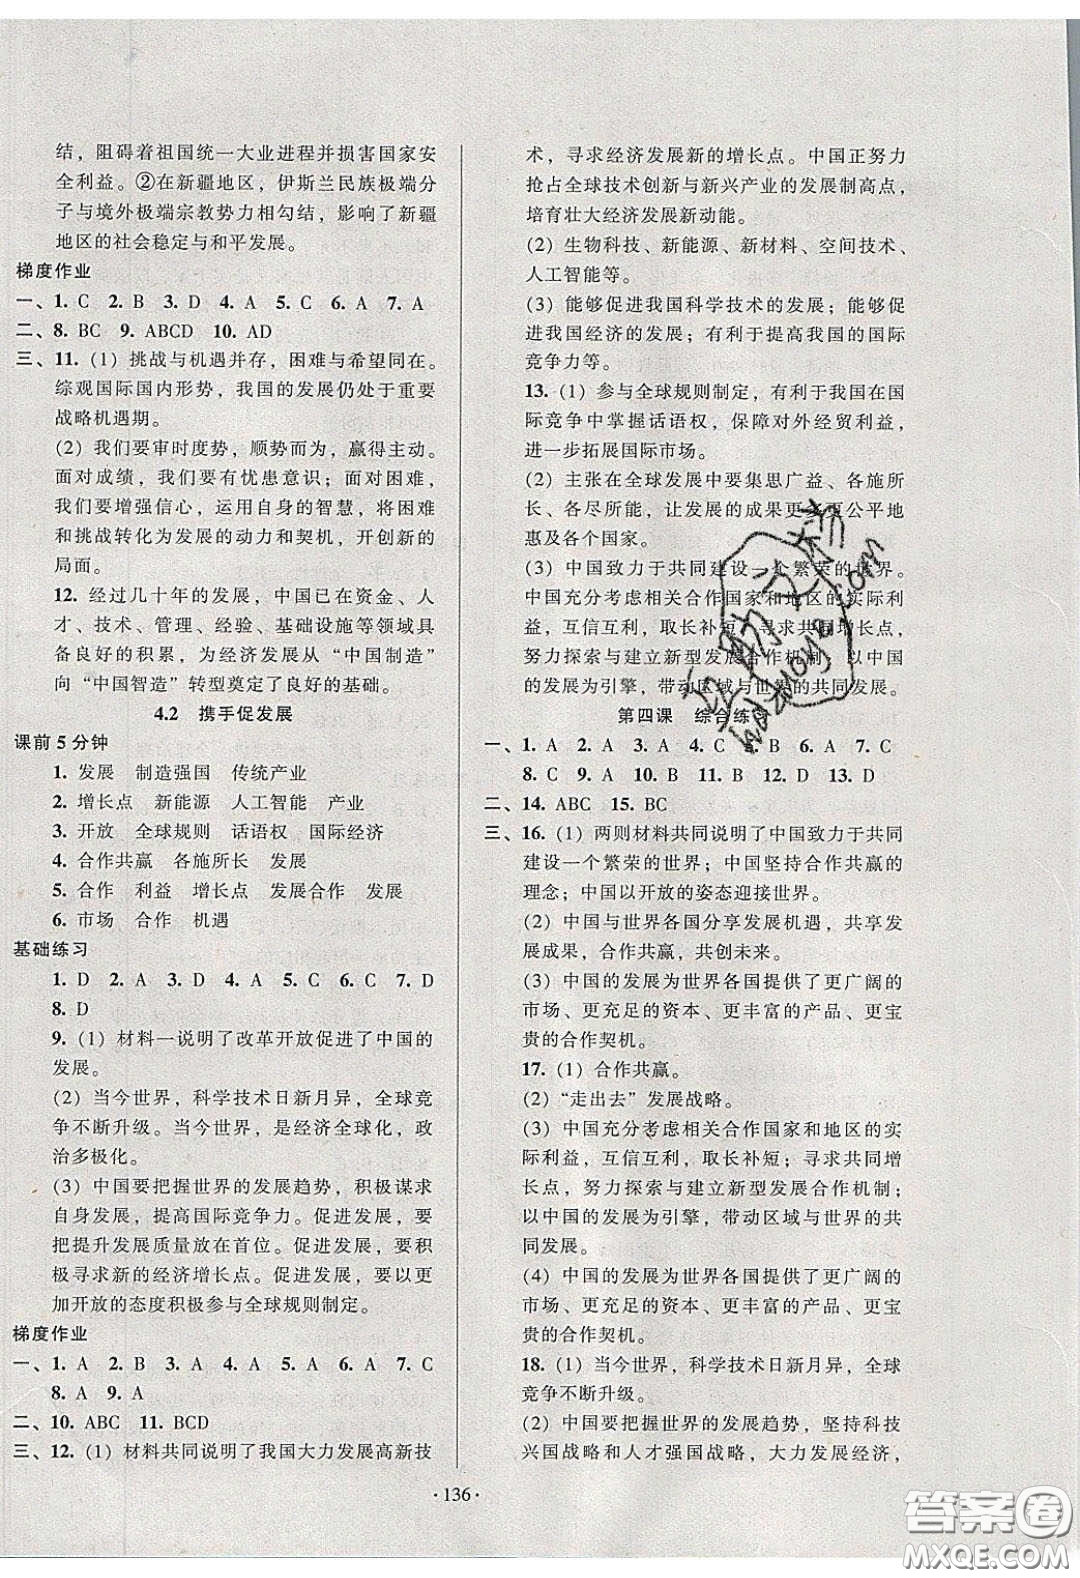 结，阻碍着祖国统一大业进程并损害国家安
全利益。②在新疆地区，伊斯兰民族极端分
子与境外极端宗教势力相勾结，影响了新疆
地区的社会稳定与和平发展。
梯度作业
一、1. C 2. B 3. D 4. A 5. C 6. A 7. A
二、8. BC 9. ABCD 10. AD
三、11. (1) 挑战与机遇并存，困难与希望同在。
综观国际国内形势，我国的发展仍处于重要
战略机遇期。
(2) 我们要审时度势，顺势而为，赢得主动。
面对成绩，我们要有忧患意识；面对困难，
我们要增强信心，运用自身的智慧，将困难
和挑战转化为发展的动力和契机，开创新的
局面。
12. 经过几十年的发展，中国已在资金、人
才、技术、管理、经验、基础设施等领域具
备良好的积累，为经济发展从“中国制造”
向“中国智造”转型奠定了良好的基础。
4.2 携手促发展
课前5分钟
1. 发展 制造强国 传统产业
2. 增长点 新能源 人工智能 产业
3. 开放 全球规则 话语权 国际经济
4. 合作共赢 各施所长 发展
5. 合作 利益 增长点 发展合作 发展
6. 市场 合作 机遇
基础练习
1. D 2. A 3. D 4. A 5. C 6. C 7. D
8. D
9. (1) 材料一说明了改革开放促进了中国的
发展。
(2) 当今世界，科学技术日新月异，全球竞
争不断升级。当今世界，是经济全球化，政
治多极化。
(3) 中国要把握世界的发展趋势，积极谋求
自身发展，提高国际竞争力。促进发展，要
把提升发展质量放在首位。促进发展，要积
极寻求新的经济增长点。促进发展，要以更
加开放的态度积极参与全球规则制定。
梯度作业
一、1. A 2. B 3. A 4. A 5. A 6. A 7. C
8. A 9. A
二、10. ABC 11. BCD
三、12. (1) 材料共同说明了我国大力发展高新技
术，寻求经济发展新的增长点。中国正努力
抢占全球技术创新与新兴产业的发展制高点，
培育壮大经济发展新动能。
(2) 生物科技、新能源、新材料、空间技术、
人工智能等。
(3) 能够促进我国科学技术的发展；能够促
进我国经济的发展；有利于提高我国的国际
竞争力等。
13. (1) 参与全球规则制定，有利于我国在国
际竞争中掌握话语权，保障对外经贸利益，
进一步拓展国际市场。
(2) 主张在全球发展中要集思广益、各施所
长、各尽所能，让发展的成果更多更公平地
惠及各个国家。
(3) 中国致力于共同建设一个繁荣的世界。
中国充分考虑相关合作国家和地区的实际利
益，互信互利，取长补短；寻求共同增长点，
努力探索与建立新型发展合作机制；以中国
的发展为引擎，带动区域与世界的共同发展。
第四课 综合练习
一、1. A 2. A 3. A 4. C 5. A 6. A 7. C
8. C 9. A 10. A 11. B 12. D 13. D
二、14. ABC 15. BC
三、16. (1) 两则材料共同说明了中国致力于共同
建设一个繁荣的世界；中国坚持合作共赢的
理念；中国以开放的姿态迎接世界。
(2) 中国与世界各国分享发展机遇，共享发
展成果，合作共赢，共创未来。
(3) 中国的发展为世界各国提供了更广阔的
市场、更充足的资本、更丰富的产品、更宝
贵的合作契机。
17. (1) 合作共赢。
(2) “走出去”发展战略。
(3) 中国充分考虑相关合作国家和地区的实
际利益，互信互利，取长补短；寻求共同增
长点，努力探索与建立新型发展合作机制；
以中国的发展为引擎，带动区域与世界的共
同发展。
(4) 中国的发展为世界各国提供了更广阔的
市场、更充足的资本、更丰富的产品、更宝
贵的合作契机。
18. (1) 当今世界，科学技术日新月异，全球
竞争不断升级。
(2) 中国要把握世界的发展趋势，坚持科技
兴国战略和人才强国战略，大力发展经济，
· 136 ·
答案圈
MXQE.COM